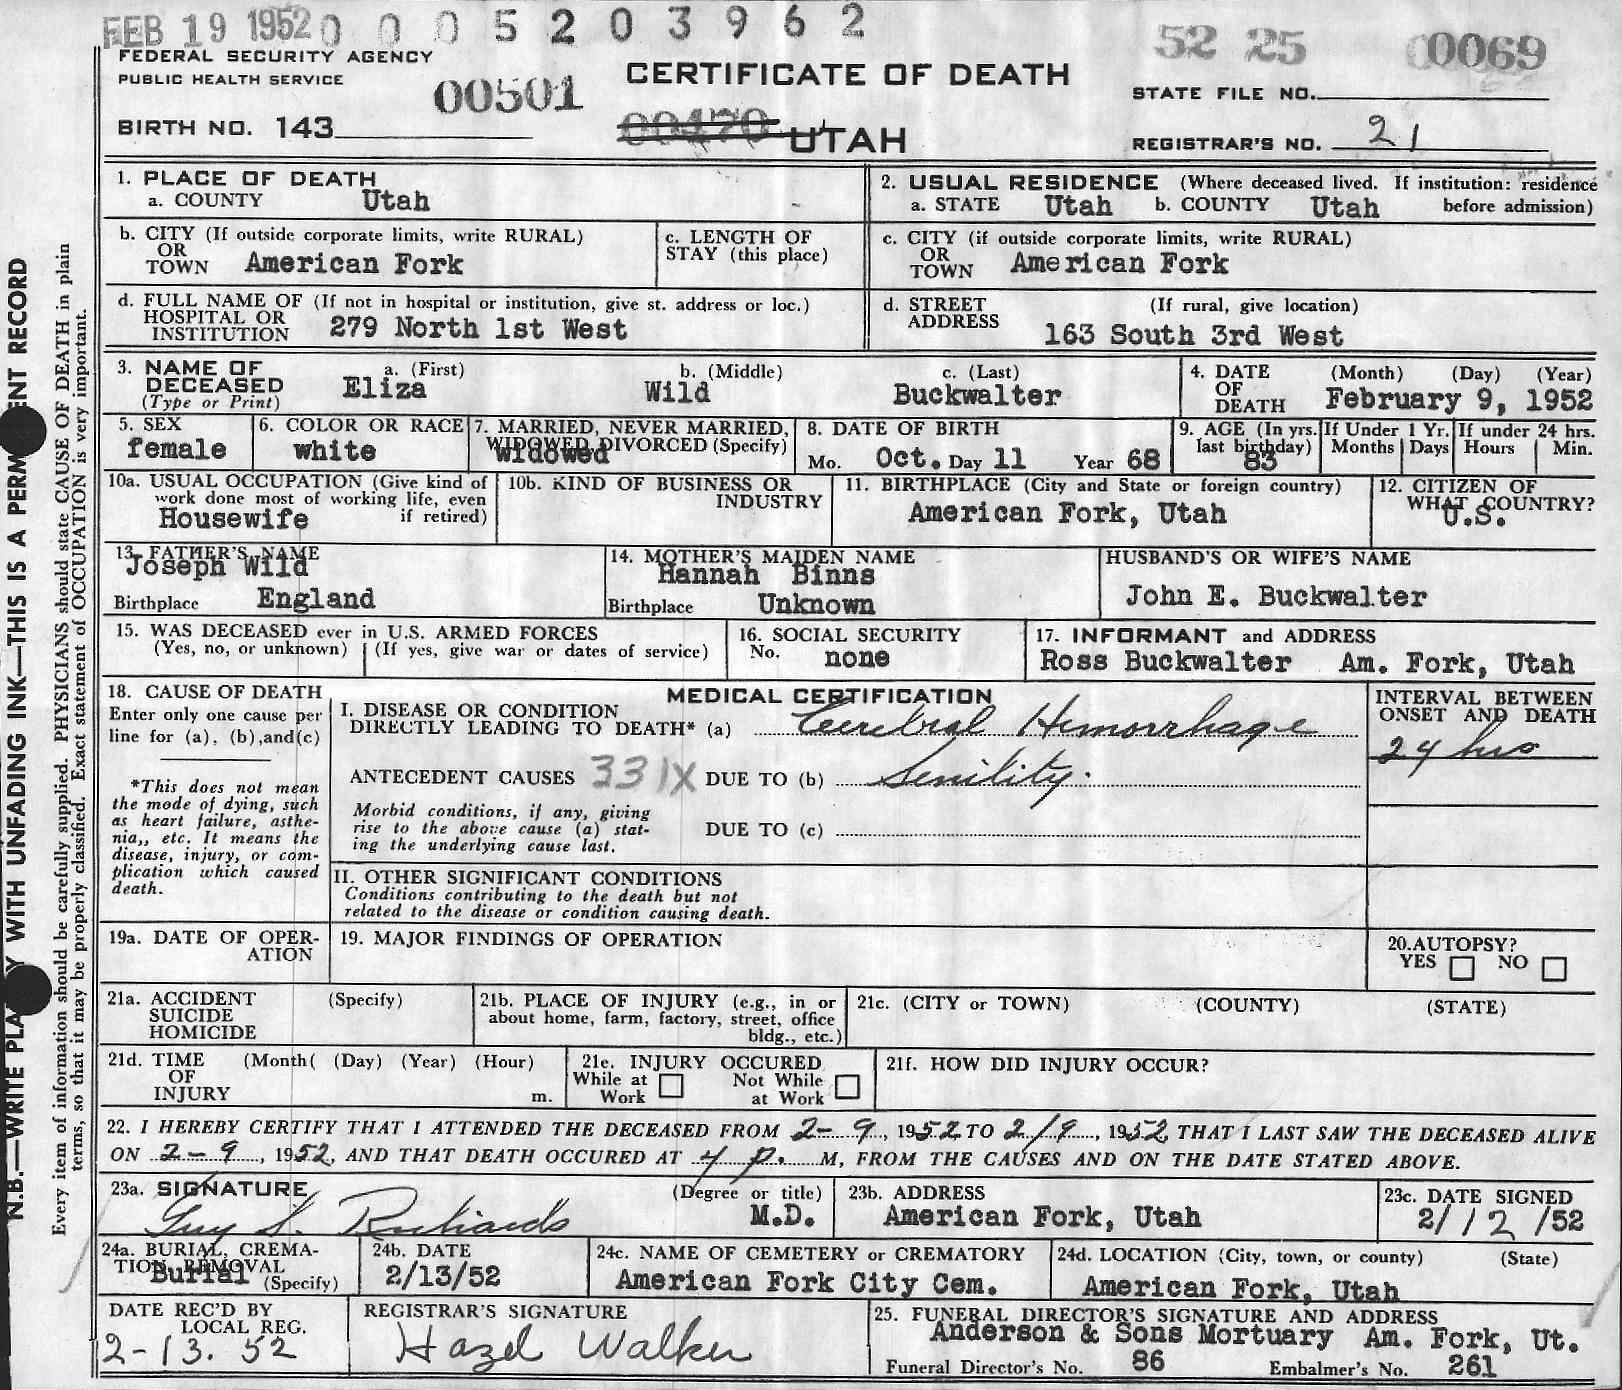 FEB 19 1952 0 0 0 5 2 0 3 9 6 2
52 25 00069
FEDERAL SECURITY AGENCY
PUBLIC HEALTH SERVICE
00501
CERTIFICATE OF DEATH
STATE FILE NO.
BIRTH NO. 143
00470 UTAH
REGISTRAR'S NO. 21
1. PLACE OF DEATH
a. COUNTY Utah
2. USUAL RESIDENCE (Where deceased lived. If institution: residence
a. STATE Utah b. COUNTY Utah before admission)
b. CITY (If outside corporate limits, write RURAL)
OR
TOWN American Fork
c. LENGTH OF
STAY (this place)
c. CITY (if outside corporate limits, write RURAL)
OR
TOWN American Fork
d. FULL NAME OF (If not in hospital or institution, give st. address or loc.)
HOSPITAL OR
INSTITUTION 279 North 1st West
d. STREET (If rural, give location)
ADDRESS 163 South 3rd West
3. NAME OF a. (First) b. (Middle) c. (Last)
DECEASED Eliza Wild Buckwalter
(Type or Print)
4. DATE (Month) (Day) (Year)
OF
DEATH February 9, 1952
5. SEX
female
6. COLOR OR RACE
white
7. MARRIED, NEVER MARRIED,
WIDOWED, DIVORCED (Specify)
Widowed
8. DATE OF BIRTH
Mo. Oct. Day 11 Year 68
9. AGE (In yrs.
last birthday)
83
If Under 1 Yr.
Months Days
If under 24 hrs.
Hours Min.
10a. USUAL OCCUPATION (Give kind of
work done most of working life, even
Housewife if retired)
10b. KIND OF BUSINESS OR
INDUSTRY
11. BIRTHPLACE (City and State or foreign country)
American Fork, Utah
12. CITIZEN OF
WHAT COUNTRY?
U.S.
13. FATHER'S NAME
Joseph Wild
Birthplace England
14. MOTHER'S MAIDEN NAME
Hannah Binns
Birthplace Unknown
HUSBAND'S OR WIFE'S NAME
John E. Buckwalter
15. WAS DECEASED ever in U.S. ARMED FORCES
(Yes, no, or unknown) (If yes, give war or dates of service)
16. SOCIAL SECURITY
No. none
17. INFORMANT and ADDRESS
Ross Buckwalter Am. Fork, Utah
18. CAUSE OF DEATH
Enter only one cause per
line for (a), (b),and(c)
*This does not mean
the mode of dying, such
as heart failure, asthe-
nia,, etc. It means the
disease, injury, or com-
plication which caused
death.
MEDICAL CERTIFICATION
I. DISEASE OR CONDITION
DIRECTLY LEADING TO DEATH* (a) Cerebral Hemorrhage
ANTECEDENT CAUSES 331X DUE TO (b) Senility.
Morbid conditions, if any, giving
rise to the above cause (a) stat-
ing the underlying cause last.
DUE TO (c)
II. OTHER SIGNIFICANT CONDITIONS
Conditions contributing to the death but not
related to the disease or condition causing death.
INTERVAL BETWEEN
ONSET AND DEATH
24 hrs
19a. DATE OF OPER-
ATION
19. MAJOR FINDINGS OF OPERATION
20.AUTOPSY?
YES NO
21a. ACCIDENT (Specify)
SUICIDE
HOMICIDE
21b. PLACE OF INJURY (e.g., in or
about home, farm, factory, street, office
bldg., etc.)
21c. (CITY or TOWN) (COUNTY) (STATE)
21d. TIME (Month( (Day) (Year) (Hour)
OF
INJURY m.
21e. INJURY OCCURED
While at Not While
Work at Work
21f. HOW DID INJURY OCCUR?
22. I HEREBY CERTIFY THAT I ATTENDED THE DECEASED FROM 2-9, 1952 TO 2/9, 1952, THAT I LAST SAW THE DECEASED ALIVE
ON 2-9, 1952, AND THAT DEATH OCCURED AT 4 p. M, FROM THE CAUSES AND ON THE DATE STATED ABOVE.
23a. SIGNATURE (Degree or title)
Guy S. Richards M.D.
23b. ADDRESS
American Fork, Utah
23c. DATE SIGNED
2/12/52
24a. BURIAL, CREMA-
TION, REMOVAL
Burial (Specify)
24b. DATE
2/13/52
24c. NAME OF CEMETERY or CREMATORY
American Fork City Cem.
24d. LOCATION (City, town, or county) (State)
American Fork, Utah
DATE REC'D BY
LOCAL REG.
2-13. 52
REGISTRAR'S SIGNATURE
Hazel Walker
25. FUNERAL DIRECTOR'S SIGNATURE AND ADDRESS
Anderson & Sons Mortuary Am. Fork, Ut.
Funeral Director's No. 86 Embalmer's No. 261
Every item of information should be carefully supplied. PHYSICIANS should state CAUSE OF DEATH in plain
terms, so that it may be properly classified. Exact statement of OCCUPATION is very important.
N.B.—WRITE PLA Y WITH UNFADING INK—THIS IS A PERM ENT RECORD